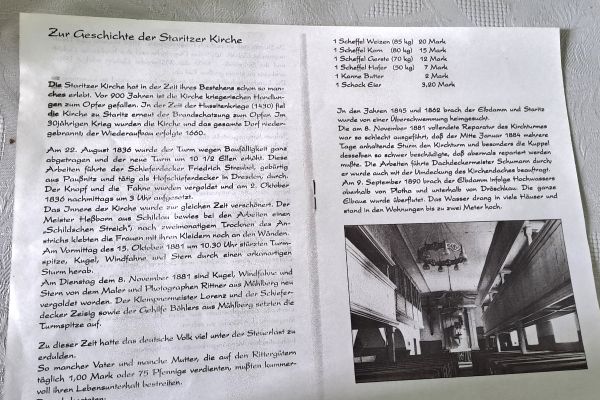 Zur Geschichte der Staritzer Kirche
Die Staritzer Kirche hat in der Zeit ihres Bestehens schon so man-
ches erlebt. Vor 200 Jahren ist die Kirche kriegerischen Handlun-
gen zum Opfer gefallen. In der Zeit der Hussitenkriege (1430) fiel
die Kirche zu Staritz erneut der Brandschatzung zum Opfer. Im
30jährigen Krieg wurden die Kirche und das gesamte Dorf nieder-
gebrannt, der Wiederaufbau erfolgte 1660.
Am 22. August 1836 wurde der Turm wegen Baufälligkeit ganz
abgetragen und der neue Turm um 10 1/2 Ellen erhöht. Diese
Arbeiten führte der Schieferdecker Friedrich Streubel, gebürtig
aus Paußnitz und tätig als Hofschieferdecker in Dresden, durch.
Der Knopf und die Fahne wurden vergoldet und am 2. Oktober
1836 nachmittags um 3 Uhr aufgesetzt.
Das Innere der Kirche wurde zur gleichen Zeit verschönert. Der
Meister Heßborn aus Schildau bewies bei den Arbeiten einen
„Schildschen Streich", nach zweimonatigem Trocknen des An-
strichs klebten die Frauen mit ihren Kleidern noch an den Wänden.
Am Vormittag des 15. Oktober 1881 um 10.30 Uhr stürzten Turm-
spitze, Kugel, Windfahne und Stern durch einen orkanartigen
Sturm herab.
Am Dienstag dem 8. November 1881 sind Kugel, Windfahne und
Stern von dem Maler und Photographen Rittner aus Mühlberg neu
vergoldet worden. Der Klempnermeister Lorenz und der Schiefer-
decker Zeisig sowie der Gehilfe Böhlers aus Mühlberg setzten die
Turmspitze auf.
Zu dieser Zeit hatte das deutsche Volk viel unter der Steuerlast zu
erdulden.
So mancher Vater und manche Mutter, die auf den Rittergütern
täglich 1,00 Mark oder 75 Pfennige verdienten, mußten kummer-
voll ihren Lebensunterhalt bestreiten.
1 Scheffel Weizen (85 kg) 20 Mark
1 Scheffel Korn (80 kg) 15 Mark
1 Scheffel Gerste (70 kg) 12 Mark
1 Scheffel Hafer (50 kg) 7 Mark
1 Kanne Butter 2 Mark
1 Schock Eier 3,20 Mark
In den Jahren 1845 und 1862 brach der Elbdamm und Staritz
wurde von einer Überschwemmung heimgesucht.
Die am 8. November 1881 vollendete Reparatur des Kirchturmes
war so schlecht ausgeführt, daß der Mitte Januar 1884 mehrere
Tage anhaltende Sturm den Kirchturm und besonders die Kuppel
desselben so schwer beschädigte, daß abermals repariert werden
mußte. Die Arbeiten führte Dachdeckermeister Schumann durch;
er wurde auch mit der Umdeckung des Kirchendaches beauftragt.
Am 9. September 1890 brach der Elbdamm infolge Hochwassers
oberhalb von Plotha und unterhalb von Dröschkau. Die ganze
Elbaue wurde überflutet. Das Wasser drang in viele Häuser und
stand in den Wohnungen bis zu zwei Meter hoch.